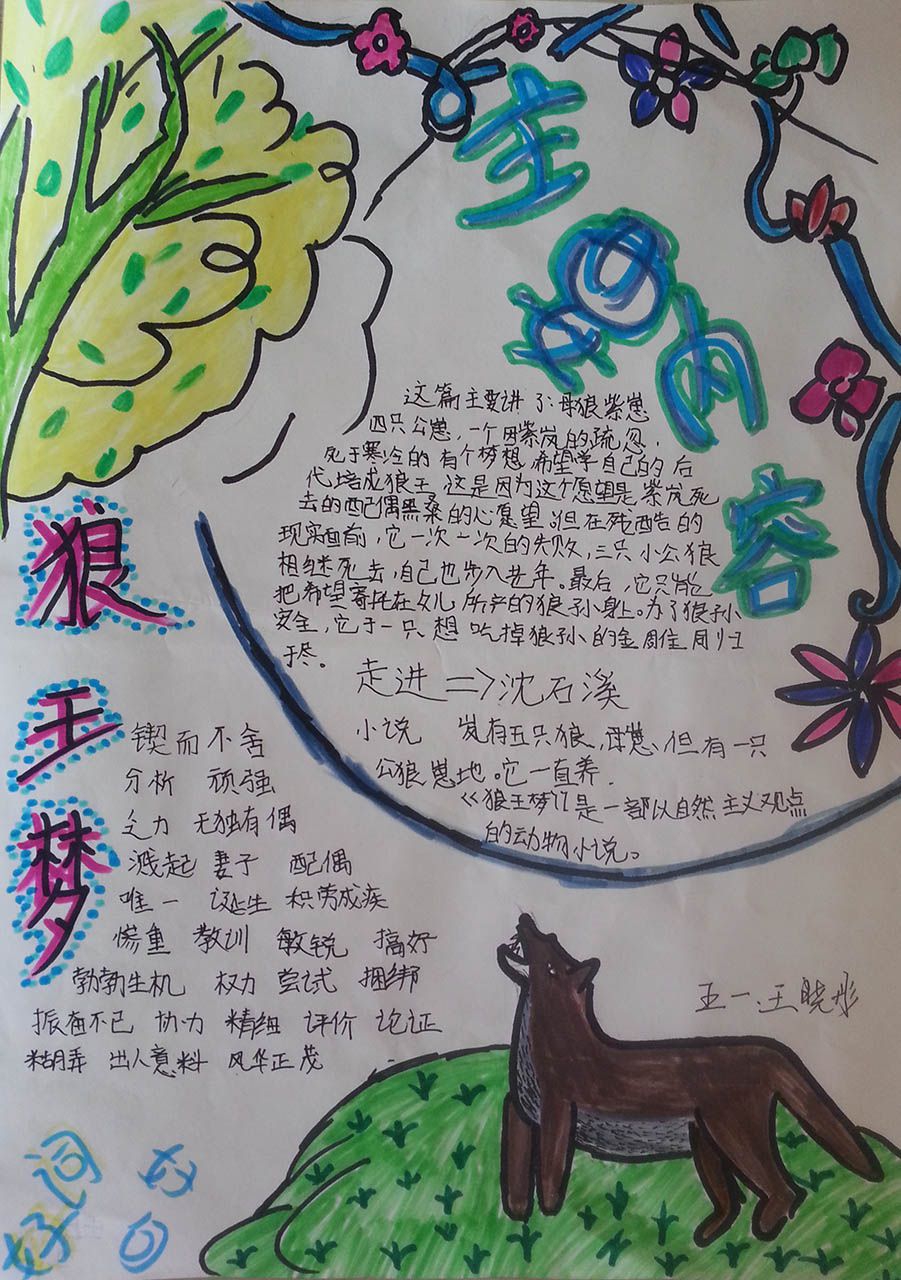 主要内容
这篇主要讲了母狼紫崽
四只公崽，一个因紫岚的疏忽，
死于寒冷的有个梦想希望学自己的后
代培成狼王，这是因为这个愿望是紫岚死
去的配偶黑桑的心愿望。但在残酷的
现实面前，它一次一次的失败，三只小公狼
相继死去，自己也步入老年。最后，它只能
把希望寄托在女儿所产的狼孙身上。为了狼孙
安全，它于一只想吃掉狼孙的金雕同归
于尽。
走进=>沈石溪
小说 岚有五只狼，母崽，但有一只
公狼崽地。它一直养.
《狼王梦》是一部以自然主义观点
的动物小说。
狼王梦
锲而不舍
分析 顽强
之力 无独有偶
溅起 妻子 配偶
唯一 诞生 积劳成疾
惨重 教训 敏锐 搞好
勃勃生机 权力 尝试 捆绑
振奋不已 协力 精细 评价 论证
糊弄 出人意料 风华正茂
五一.王晓彤
好词
好句